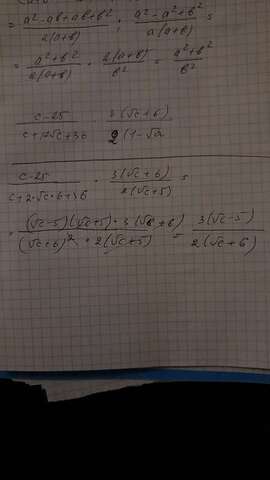 = a²-ab+ab+b² / a(a+b) : a²-a²+b² / a(a+b) =
= a²+b² / a(a+b) · a(a+b) / b² = a²+b² / b²
c-25 / c+12√c+36 · 3(√c+6) / 2(1-√a
c-25 / c+2·√c·6+36 · 3(√c+6) / 2(√c+5) =
= (√c-5)(√c+5)·3(√c+6) / (√c+6)²·2(√c+5) = 3(√c-5) / 2(√c+6)